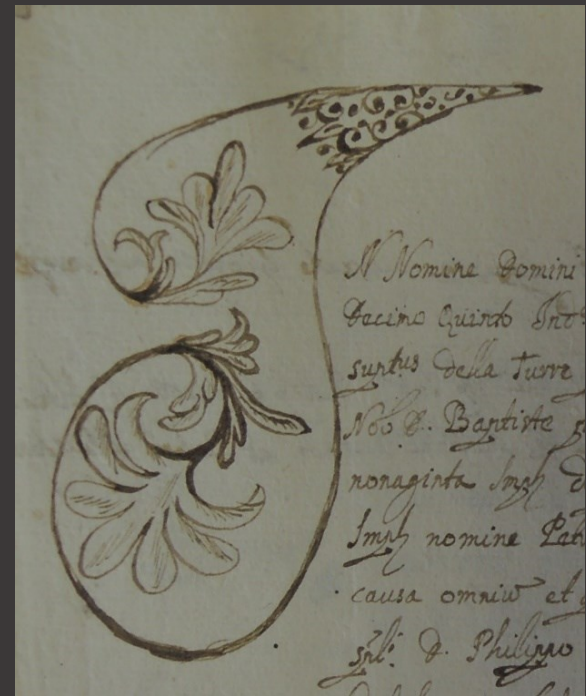 IN Nomine Domini
Decimo Quinto
suptus della Turre
Nob D. Baptiste
nonaginta Imph
Imph nomine
causa omniu et
D. Philippo